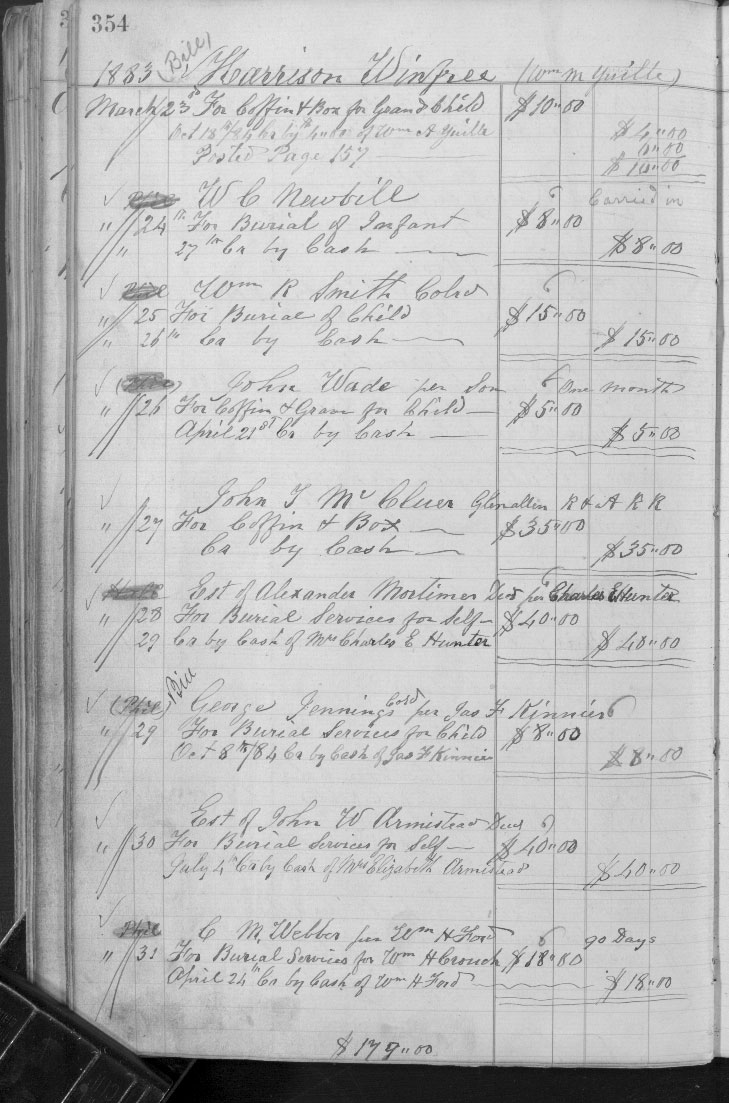 354
(Bill)
1883 Harrison Winfree (Wm M Yuille)
March 23d For Coffin & Box for Grand Child $10"00
Oct 18th/84 Cr by Cash of Wm A Yuille $4"00
Posted Page 157 6"00
$10"00
✓ W C Newbill Carried in
" 24th For Burial of Infant $8"00
" 27th Cr by Cash $8"00
✓ Wm R Smith Colrd
" 25 For Burial of Child $15"00
" 26th Cr by Cash $15"00
✓ John Wade per Son One month
" 26 For Coffin & Grave for Child $5"00
April 21st Cr by Cash $5"00
✓ John T McCluer Glenallen R & A R R
" 27 For Coffin & Box $35"00
Cr by Cash $35"00
✓ Est of Alexander Mortimer Decd per Charles E Hunter
" 28 For Burial Services for Self $40"00
29 Cr by Cash of Mrs Charles E Hunter $40"00
Bill
✓ (Phil) George Jennings Cold per Jas F Kinnier
" 29 For Burial Services for Child $8"00
Oct 8th/84 Cr by Cash of Jas F Kinnier $8"00
✓ Est of John W Armistead Decd
" 30 For Burial Services for Self $40"00
July 4th Cr by Cash of Mrs Elizabeth Armistead $40"00
✓ Phil C M Webber per Wm H Ford 90 Days
" 31 For Burial Services for Wm H Crouch $18"00
April 24th Cr by Cash of Wm H Ford $18"00
$179"00